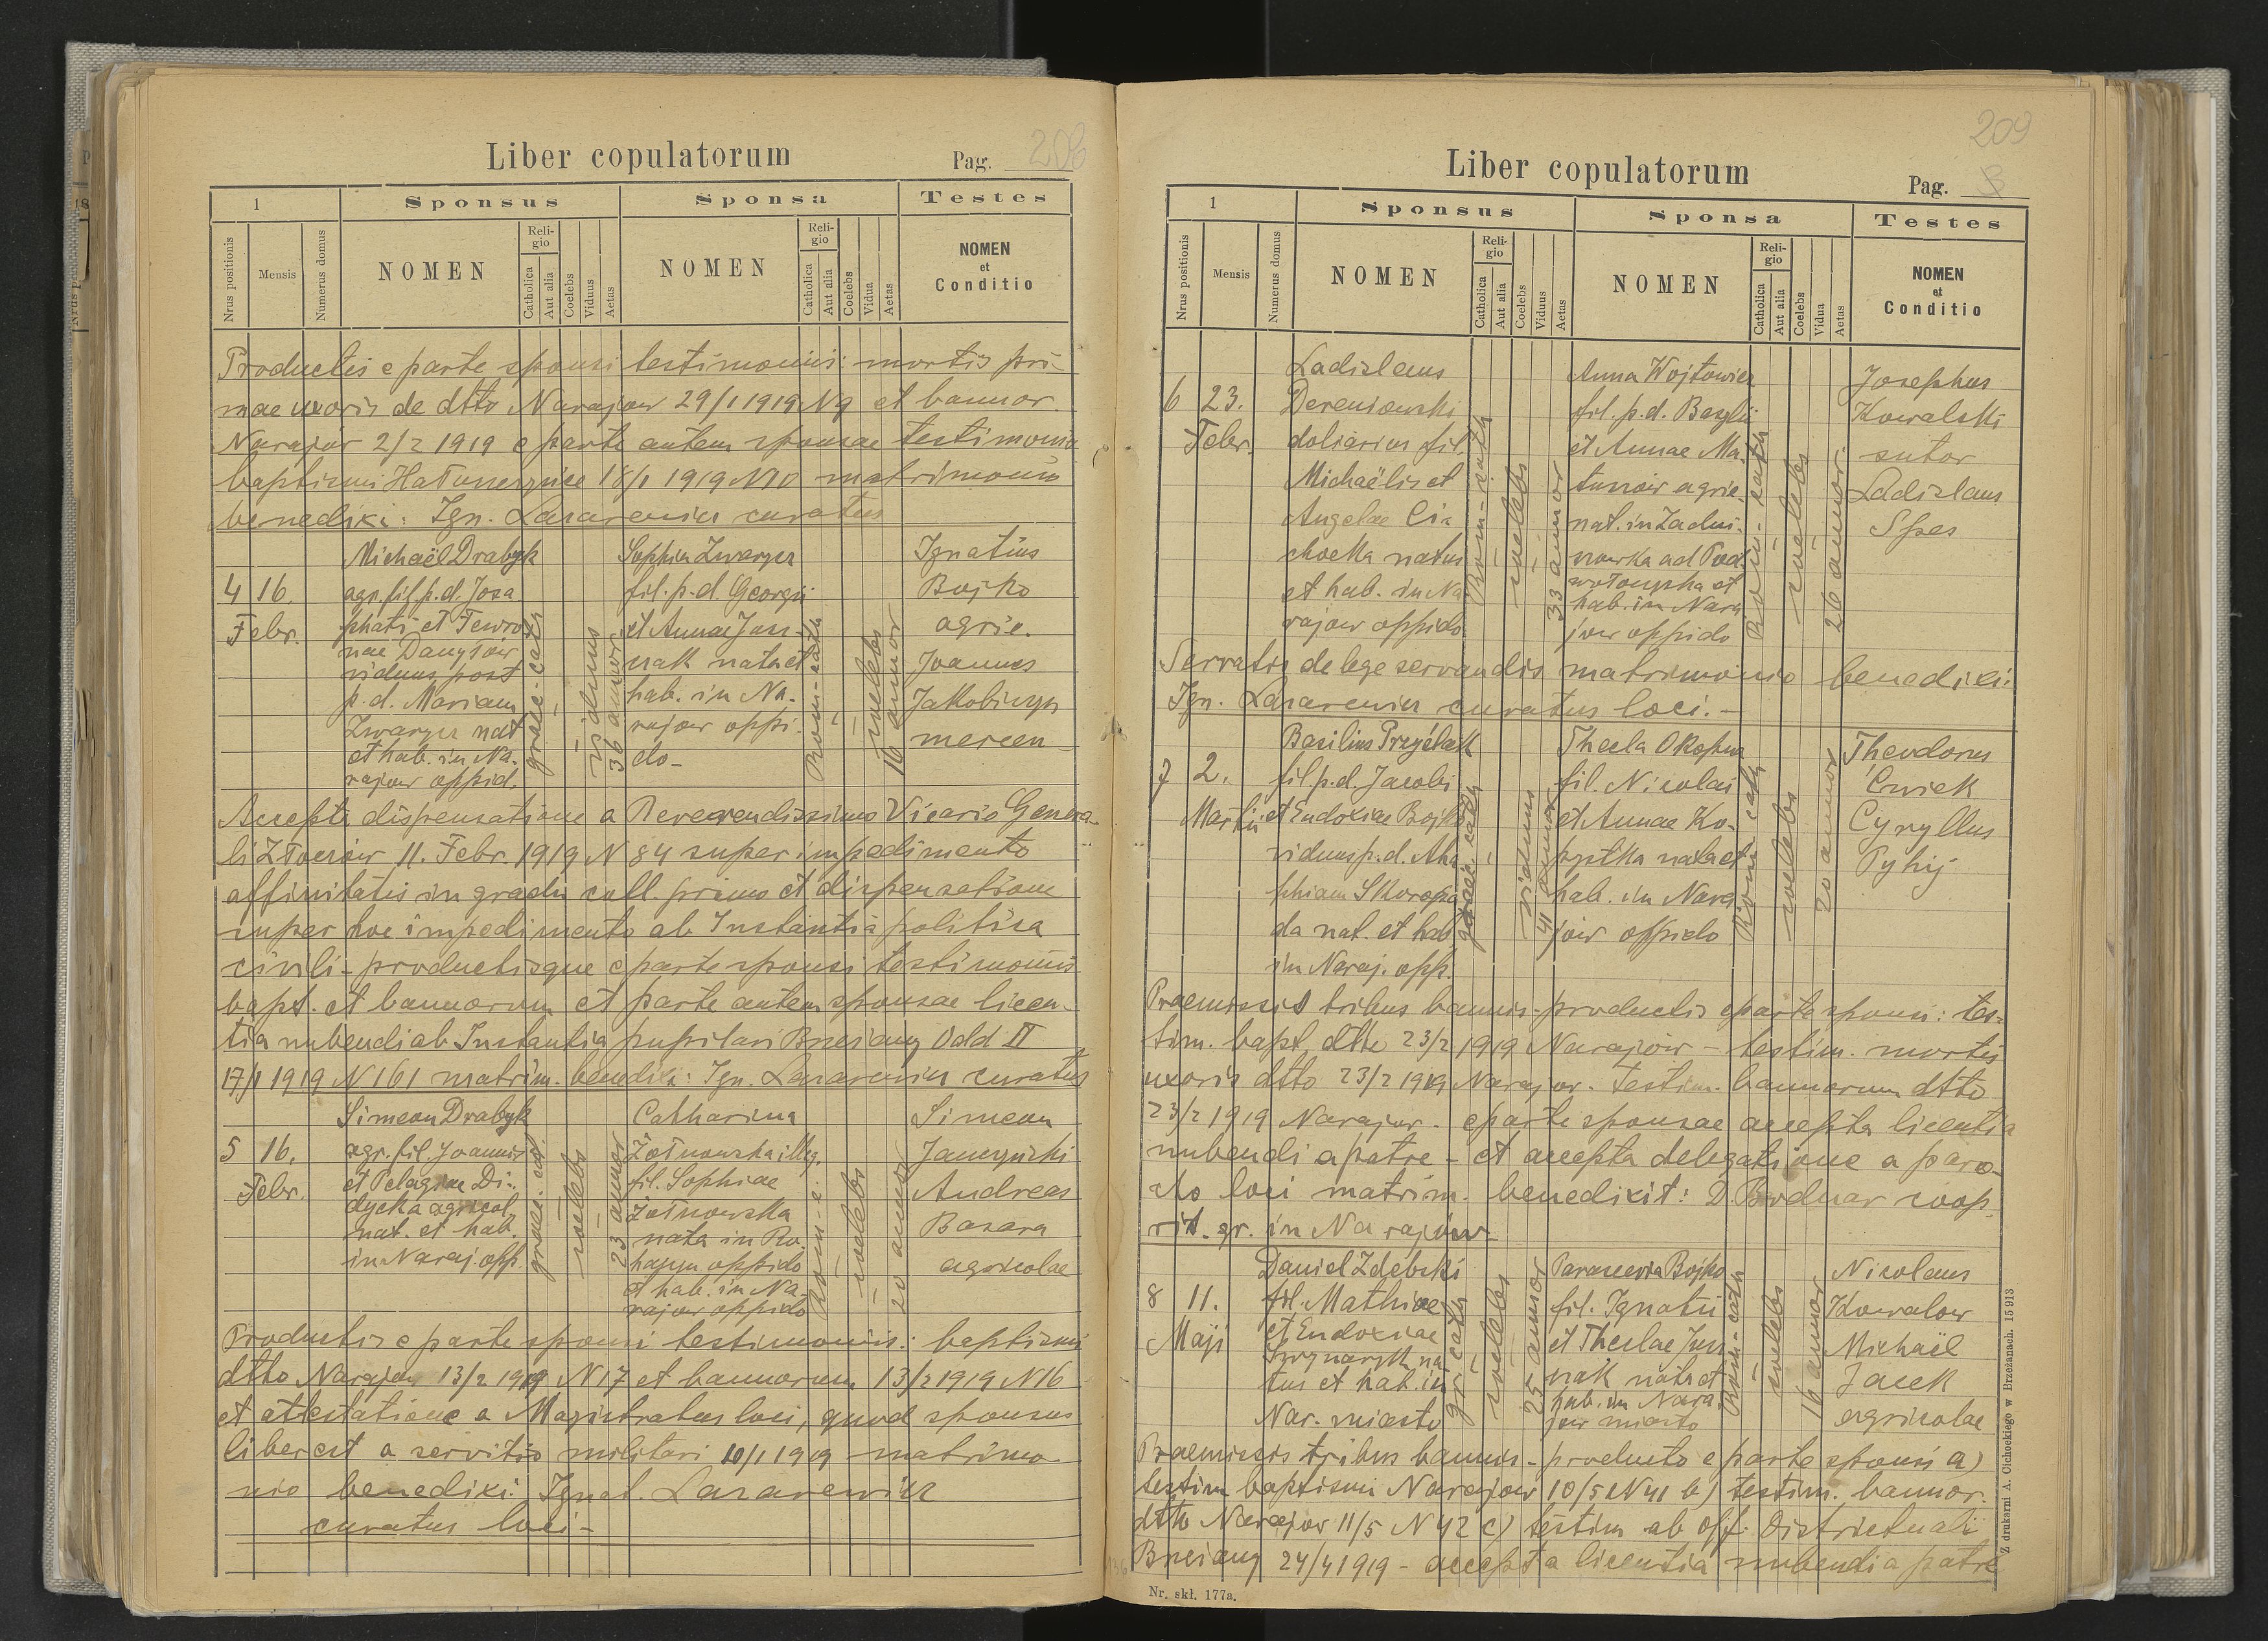 Liber copulatorum
Pag. 208
1
Sponsus
Sponsa
Testes
Nrus positionis
Mensis
Numerus domus
NOMEN
Religio
Catholica
Aut alia
Coelebs
Viduus
Aetas
NOMEN
Religio
Catholica
Aut alia
Coelebs
Vidua
Aetas
NOMEN
et
Conditio
Productis e parte sponsi testimoniis: mortis pri-
mae uxoris de dtto Narajow 29/1 1919 N9 et bannor.
Narajów 2/2 1919 e parte autem sponsae testimonia
baptismi 18/1 1919 N10 matrimonio
benedixi: Ign. Lazarewicz curatus
4 16.
Febr.
Michaël Drabyk
agr. fil. p. d. Josa
phati et Fewro
nae Danyłow
viduus post
p. d. Mariam
Zwarycz nat
et hab. in Na-
rajow oppid.
graec-cath
viduus
36 annor
Sophia Zwarycz
fil. p. d. Georgii
et Annae Jasz-
nak nata et
hab. in Na-
rajow oppi-
do-
Rom-cath
coelebs
16 annor
Ignatius
Bojko
agric.
Joannes
Jakobiczyn
mercen
Accepta dispensatione a Reverendissimo Vicario Genera-
li Złoczów 11. Febr. 1919 N 84 super impedimento
affinitatis in gradu coll. primo et dispensatione
super hoc impedimento ab Instantia politica
civili - productisque e parte sponsi testimoniis
bapt. et bannorum et parte autem sponsae licen-
tia nubendi ab Instantia pupilari Brzeżany Odd II
17/1 1919 N 161 matrim. benedixi: Ign. Lazarewicz curatus
5 16.
Febr.
Simeon Drabyk
agr. fil. Joannis
et Pelagiae Di-
dycka agricol.
nat. et hab.
in Naraj. opp.
graec. cat.
coelebs
23 annor
Catharina
Żołnowska illeg.
fil. Sophiae
Żołnowska
nata in Ro
hatyn oppido
et hab. in Na-
rajow oppido
Rom-c.
coelebs
20 annor
Simeon
Janczyński
Andreas
Bazara
agricolae
Productis e parte sponsi testimoniis: baptismi
dtto Narajow 13/2 1919 N17 et bannorum 13/2 1919 N16
et attestatione a Magistratus loci, quod sponsus
liber est a servitio militari 10/1 1919 matrimo-
nio benedixi: Ignat. Lazarewicz
curatus loci-
209
Liber copulatorum
Pag.
1
Sponsus
Sponsa
Testes
Nrus positionis
Mensis
Numerus domus
NOMEN
Religio
Catholica
Aut alia
Coelebs
Viduus
Aetas
NOMEN
Religio
Catholica
Aut alia
Coelebs
Vidua
Aetas
NOMEN
et
Conditio
6 23.
Febr.
Ladislaus
Dereniowski
doliarius fil.
Michaëlis et
Angelae Cia
chocka natus
et hab. in Na
rajow oppido
Rom-cath
coelebs
33 annor
Anna Wojtowicz
fil. p. d. Bazylii
et Annae Ma-
tussow agric.
nat. in Zadwi-
nowka ad Pod
hab. in Nara
jow oppido
Rom-cath
coelebs
26 annor.
Josephus
Kowalski
sutor
Ladislaus
Spes
Servatis de lege servandis matrimonio benedixi:
Ign. Lazarewicz curatus loci.-
7 2.
Martii
Basilius Przyślak
fil p. d. Jacobi
et Eudoxiae Bojko
viduus p. d. Aha
phiam Skoropa
da nat. et hab
in Naraj. opp.
graec. cath
viduus
41 annor
Thecla Okopna
fil. Nicolai
et Annae Ko-
pystka nata et
hab. in Nara
jow oppido
Rom cath
coelebs
20 annor
Theodorus
Cwiek
Cyryllus
Pyhij
Praemissis tribus bannis - productis e parte sponsi: tes-
tim. bapt. dtto 23/2 1919 Narajow - testim. mortis
uxoris dtto 23/2 1919 Narajow. Testim. bannorum dtto
23/2 1919 Narajow - e parte sponsae accepta licentia
nubendi a patre - et accepta delegatione a paro-
cho loci matrim. benedixit: D. Bodnar coop.
rit. gr. in Narajow-
8 11.
Maji
Daniel Zdebski
fil. Mathiae
et Eudoxiae
Swynaryk na
tus et hab. in
Nar. miasto
gr cath
coelebs
25 annor
Parascevia Bojko
fil. Ignatii
et Theclae Jasz
nak nata et
hab. in Nara
jow miasto
Rom-cath
coelebs
16 annor
Nicolaus
Kowalow
Michaël
Jacek
agricolae
Praemissis tribus bannis - producto e parte sponsi a)
testim baptismi Narajow 10/5 N41 b) testim. bannor.
dtto Narajow 11/5 N42 c) testim ab off. districtuali
Brzeżany 24/4 1919 - accepta licentia nubendi a patre
Nr. skł. 177a.
Z drukarni A. Cichockiego w Brzeżanach. 15 913